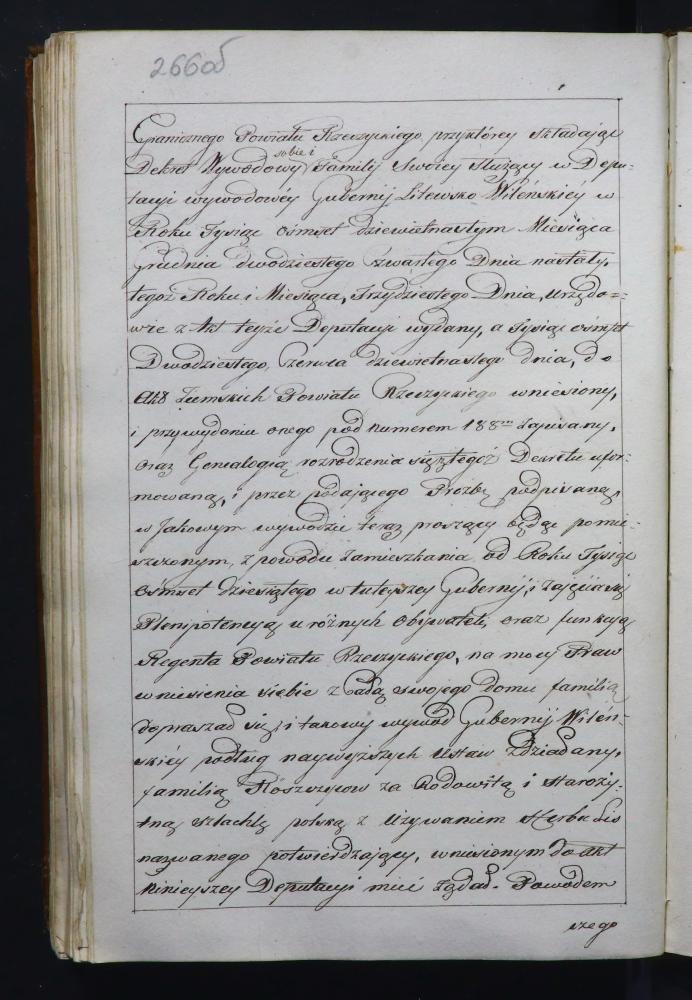 266об
Granicznego Powiatu Rzeczyckiego, przyktórey składaiąc
sobie i
Dekret Wywodowy Familij Swoiey służący w Depu-
tacyi wywodowéy Gubernij Litewsko Wileńskiéy w
Roku Tysiąc ośmset dziewietnastym Miesiąca
Grudnia dwodziestego czwartego Dnia nastały,
tegoż Roku i Miesiąca, Trzydziestego Dnia, Urzędo=
wie z Akt teyże Deputacyi wydany, a Tysiąc ośmset
Dwodziestego, Czerwca dziewietnastego dnia, do
Akt Ziemskich Powiatu Rzeczyckiego wniesiony,
i przywydaniu onego pod numerem 188m zapisany,
oraz Genealogią rozrodzenia się z tegoż Dekretu ufor-
mowaną, i przez podaiącego Prozbę podpisaną,
w Jakowym wywodzie teraz proszący będąc pomie-
szczonym, z powodu zamieszkania od Roku Tysiąc
ośmset dziesiątego w tuteyszey Gubernij, i zajęcia się
Plenipotencyą u różnych Obywateli, oraz funkcyą
Regenta Powiatu Rzeczyckiego, na mocy Praw
wniesienia siebie z całą swojego domu familią
dopraszał się, i takowy wywod Gubernij Wileń-
skiéy podług naywyższych Ustaw zdziałany,
familią Roszczycow za Rodowitą i staroży-
tną szlachtę polską z Używaniem Herbu Lis
nazwanego potwierdzaiący, wniesionym do akt
Ninieyszey Deputacyi mieć żądał. Powodem
czego